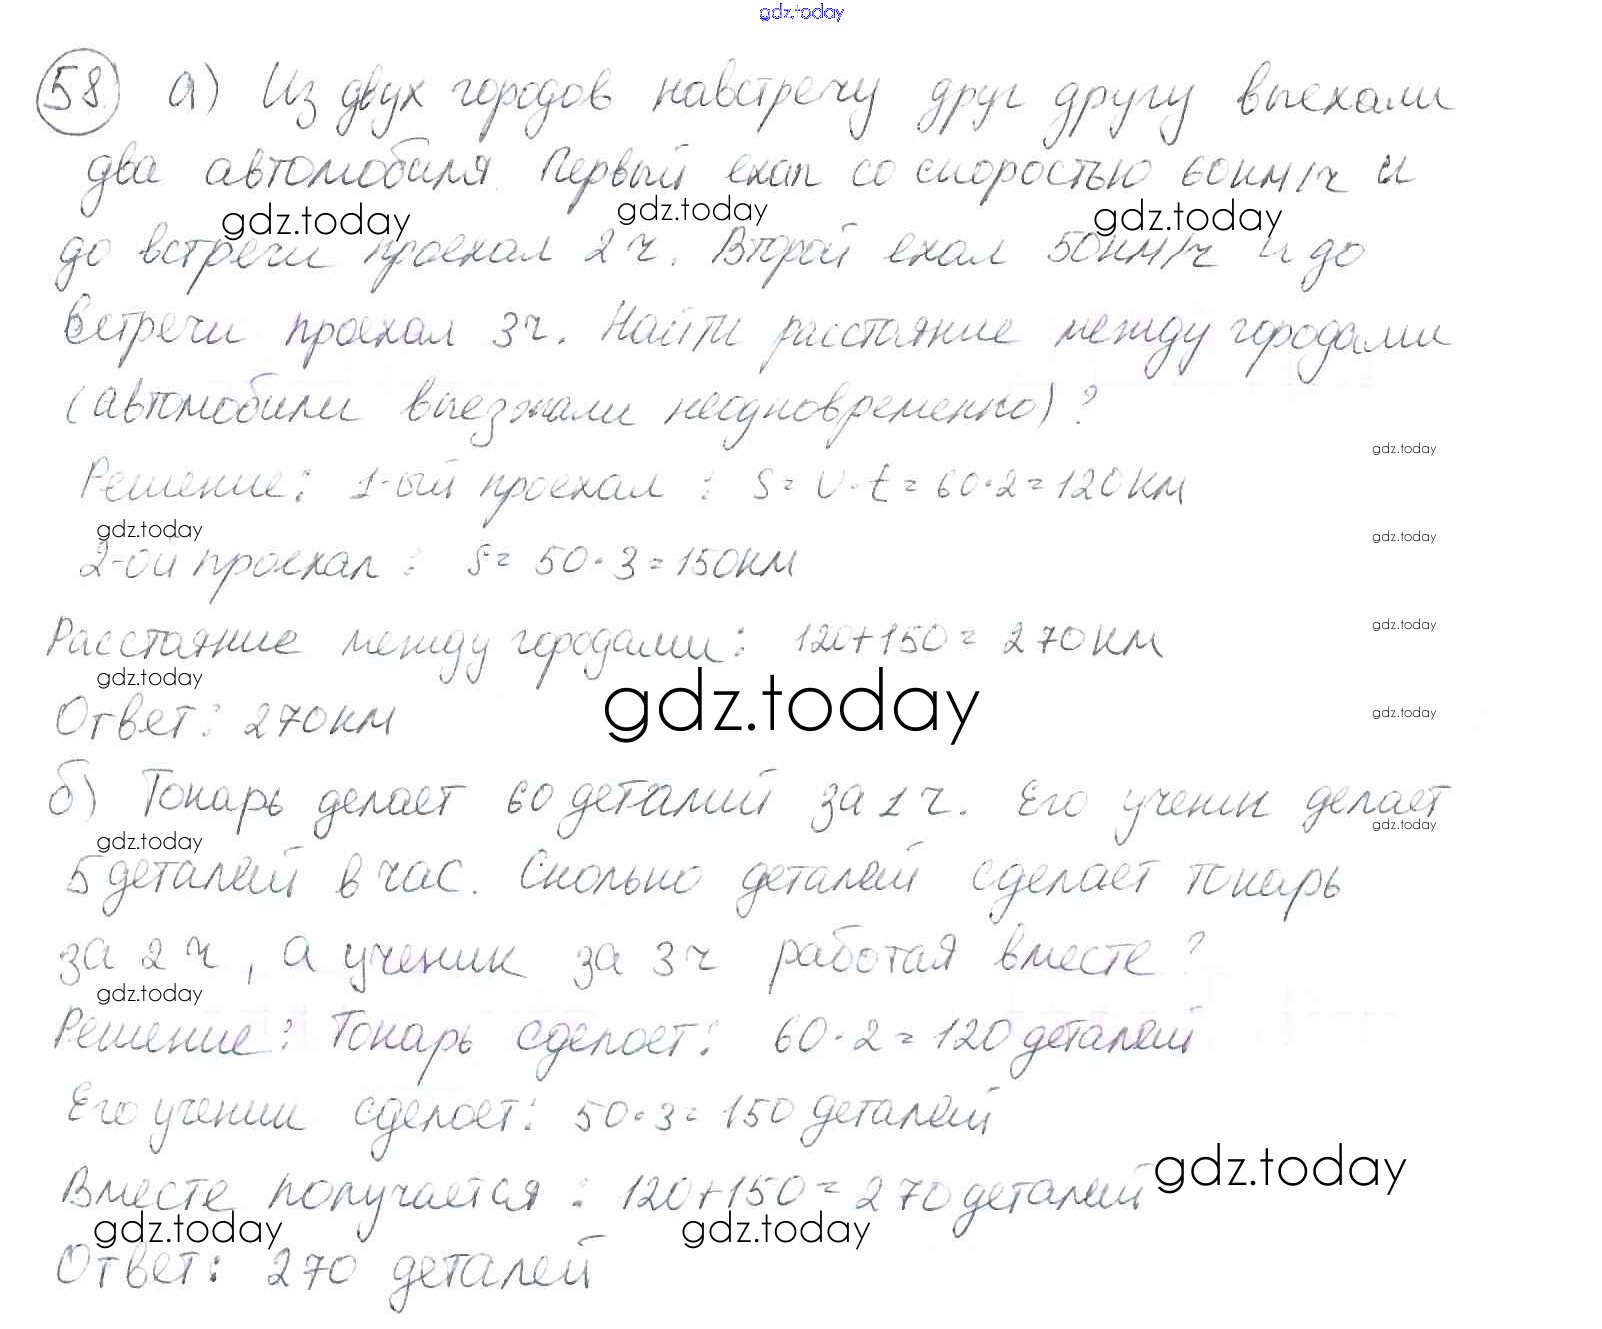 gdz.today
58 а) Из двух городов навстречу друг другу выехали
два автомобиля. Первый ехал со скоростью 60км/ч и
gdz.today gdz.today gdz.today
до встречи проехал 2 ч. Второй ехал 50км/ч и до
встречи проехал 3ч. Найти расстояние между городами
(автомобили выезжали неодновременно)?
gdz.today
Решение: 1-ый проехал : S = υ·t = 60·2 = 120км
gdz.today gdz.today
2-ой проехал : S = 50·3 = 150км
Расстояние между городами: 120+150 = 270км
gdz.today
gdz.today gdz.today
Ответ: 270км
gdz.today
б) Токарь делает 60 деталий за 1 ч. Его ученик делает
gdz.today gdz.today
5 деталей в час. Сколько деталей сделает токарь
за 2 ч, а ученик за 3ч работая вместе?
gdz.today
Решение: Токарь сделоет: 60·2 = 120 деталей
Его ученик сделоет: 50·3 = 150 деталей
gdz.today
Вместе получается : 120+150 = 270 деталей
gdz.today gdz.today
Ответ: 270 деталей